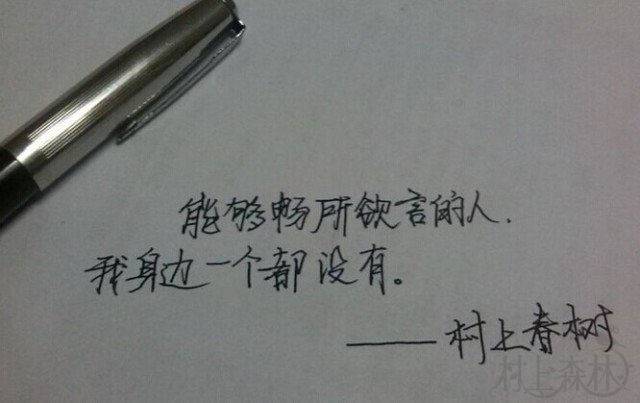 能够畅所欲言的人.
我身边一个都没有。
——村上春树
村上森林